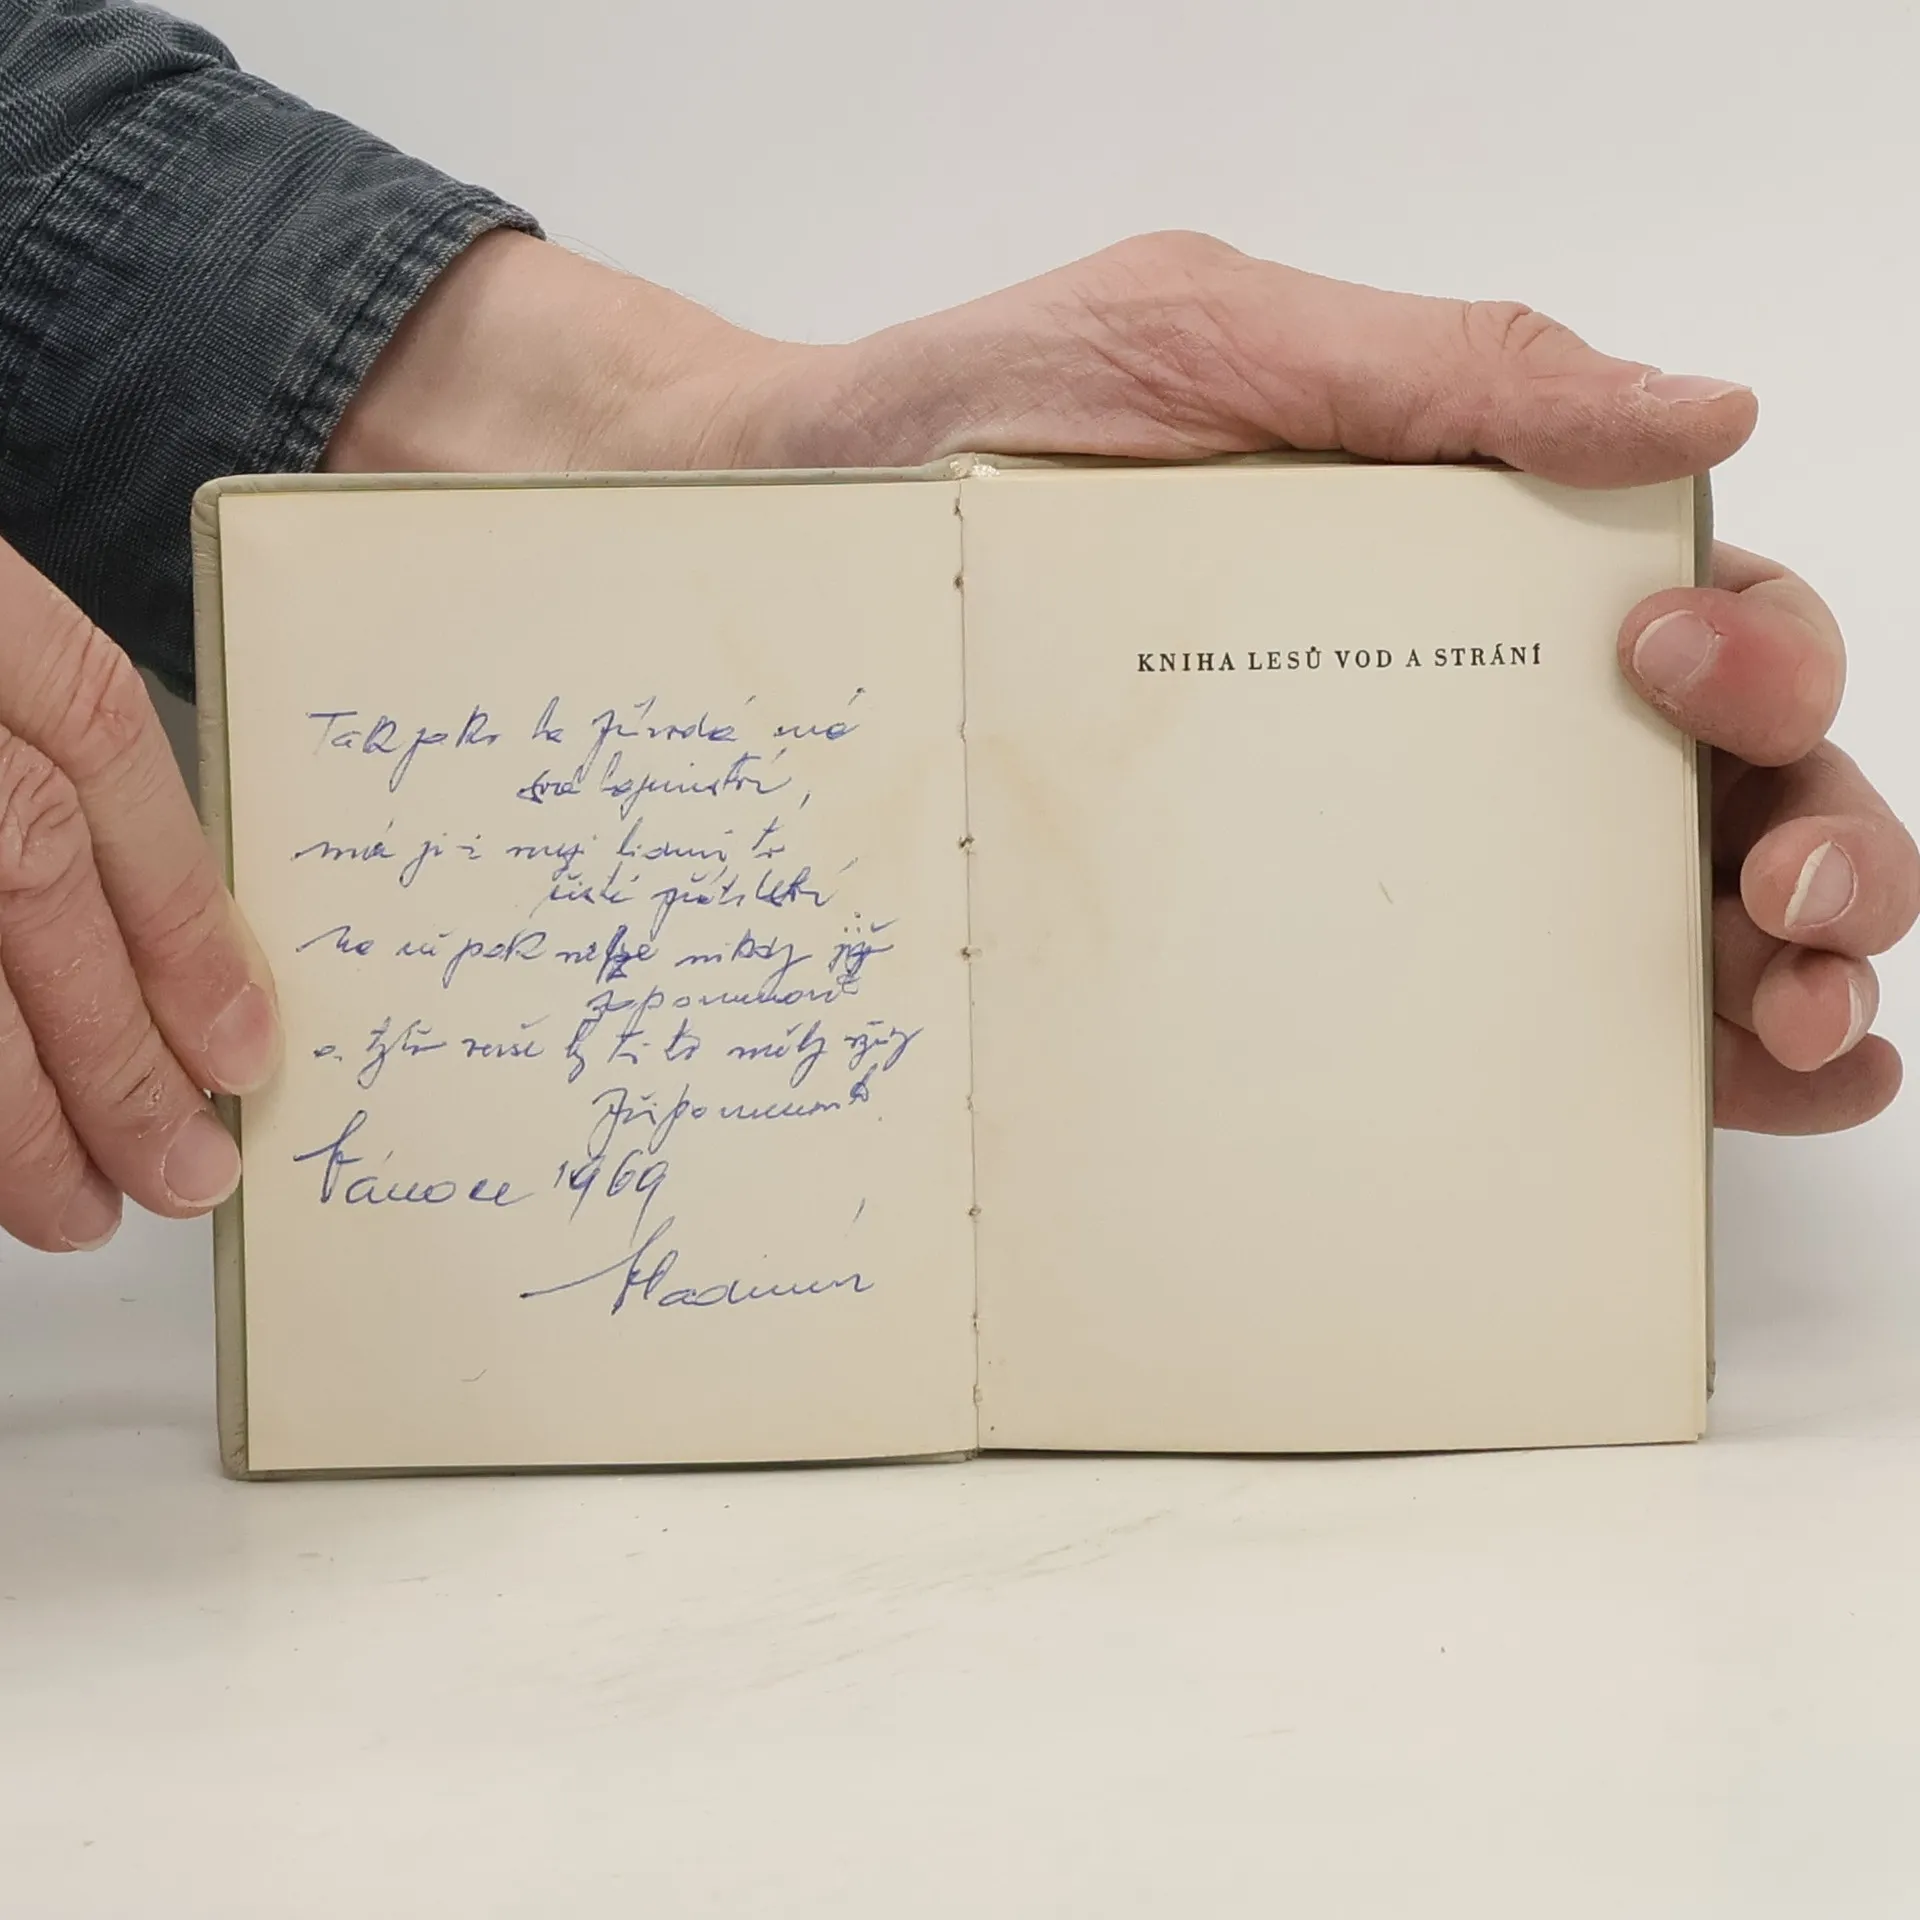 Tak jako ta příroda má
svá tajemství,
má je i mezi lidmi to
čisté přátelství
na něž pak nelze nikdy již
zapomenout
a tyto verše by ti to měly vždy
připomenout.
Vánoce 1969
Vladimír
KNIHA LESŮ VOD A STRÁNÍ